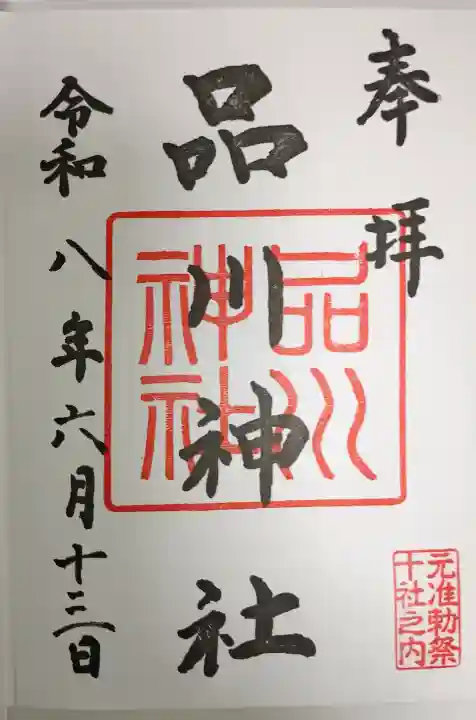 奉拝
品川神社
品川神社
元准勅祭
十社之内
令和八年六月十三日